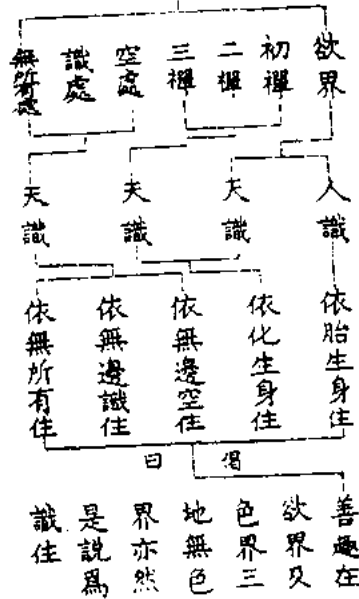 欲界
初禪
二禪
三禪
空處
識處
無所有處
人識
天識
天識
天識
依胎生身住
依化生身住
依無邊空住
依無邊識住
依無所有住
偈曰
善趣在
欲界及
色界三
地無色
界亦然
是說為
識住